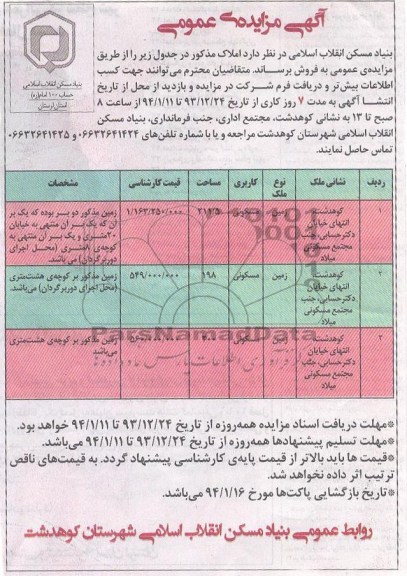 آگهی مزایده‌ی عمومی
بنیاد مسکن انقلاب اسلامی
حساب ۱۰۰ امام(ره)
استان لرستان
بنیاد مسکن انقلاب اسلامی در نظر دارد املاک مذکور در جدول زیر را از طریق
مزایده‌ی عمومی به فروش برساند. متقاضیان محترم می‌توانند جهت کسب
اطلاعات بیش‌تر و دریافت فرم شرکت در مزایده و بازدید از محل از تاریخ
انتشا آگهی به مدت ۷ روز کاری از تاریخ ۹۳/۱۲/۲۴ تا ۹۴/۱/۱۱ از ساعت ۸
صبح تا ۱۳ به نشانی کوهدشت، مجتمع اداری، جنب فرمانداری، بنیاد مسکن
انقلاب اسلامی شهرستان کوهدشت مراجعه و یا با شماره تلفن‌های ۰۶۶۳۲۶۴۱۴۲۴ و ۰۶۶۳۲۶۴۱۴۲۵
تماس حاصل نمایند.
ردیف نشانی ملک نوع ملک کاربری مساحت قیمت کارشناسی مشخصات
۱ کوهدشت انتهای خیابان دکترحسابی، جنب مجتمع مسکونی میلاد زمین ۱/۱۶۳/۲۵۰/۰۰۰ زمین مذکور دو بر بوده که یک بر آن که یک بر آن منتهی به خیابان ۲۰متری و یک بر آن منتهی به کوچه‌ی ۸متری (محل اجرای دوربرگردان) می باشد
۲ کوهدشت انتهای خیابان دکترحسابی، جنب مجتمع مسکونی میلاد زمین مسکونی ۱۹۸ ۵۴۹/۰۰۰/۰۰۰ زمین مذکور بر کوچه‌ی هشت‌متری (محل اجرای دوربرگردان) می‌باشد.
۳ کوهدشت انتهای خیابان دکترحسابی، جنب مجتمع مسکونی میلاد زمین زمین مذکور بر کوچه‌ی هشت‌متری می‌باشد
ParsNamadData
*مهلت دریافت اسناد مزایده همه‌روزه از تاریخ ۹۳/۱۲/۲۴ تا ۹۴/۱/۱۱ خواهد بود.
*مهلت تسلیم پیشنهادها همه‌روزه از تاریخ ۹۳/۱۲/۲۴ تا ۹۴/۱/۱۱ می‌باشد.
*قیمت ها باید بالاتر از قیمت پایه‌ی کارشناسی پیشنهاد گردد. به قیمت‌های ناقص
ترتیب اثر داده نخواهد شد.
*تاریخ بازگشایی پاکت‌ها مورخ ۹۴/۱/۱۶ می‌باشد.
روابط عمومی بنیاد مسکن انقلاب اسلامی شهرستان کوهدشت